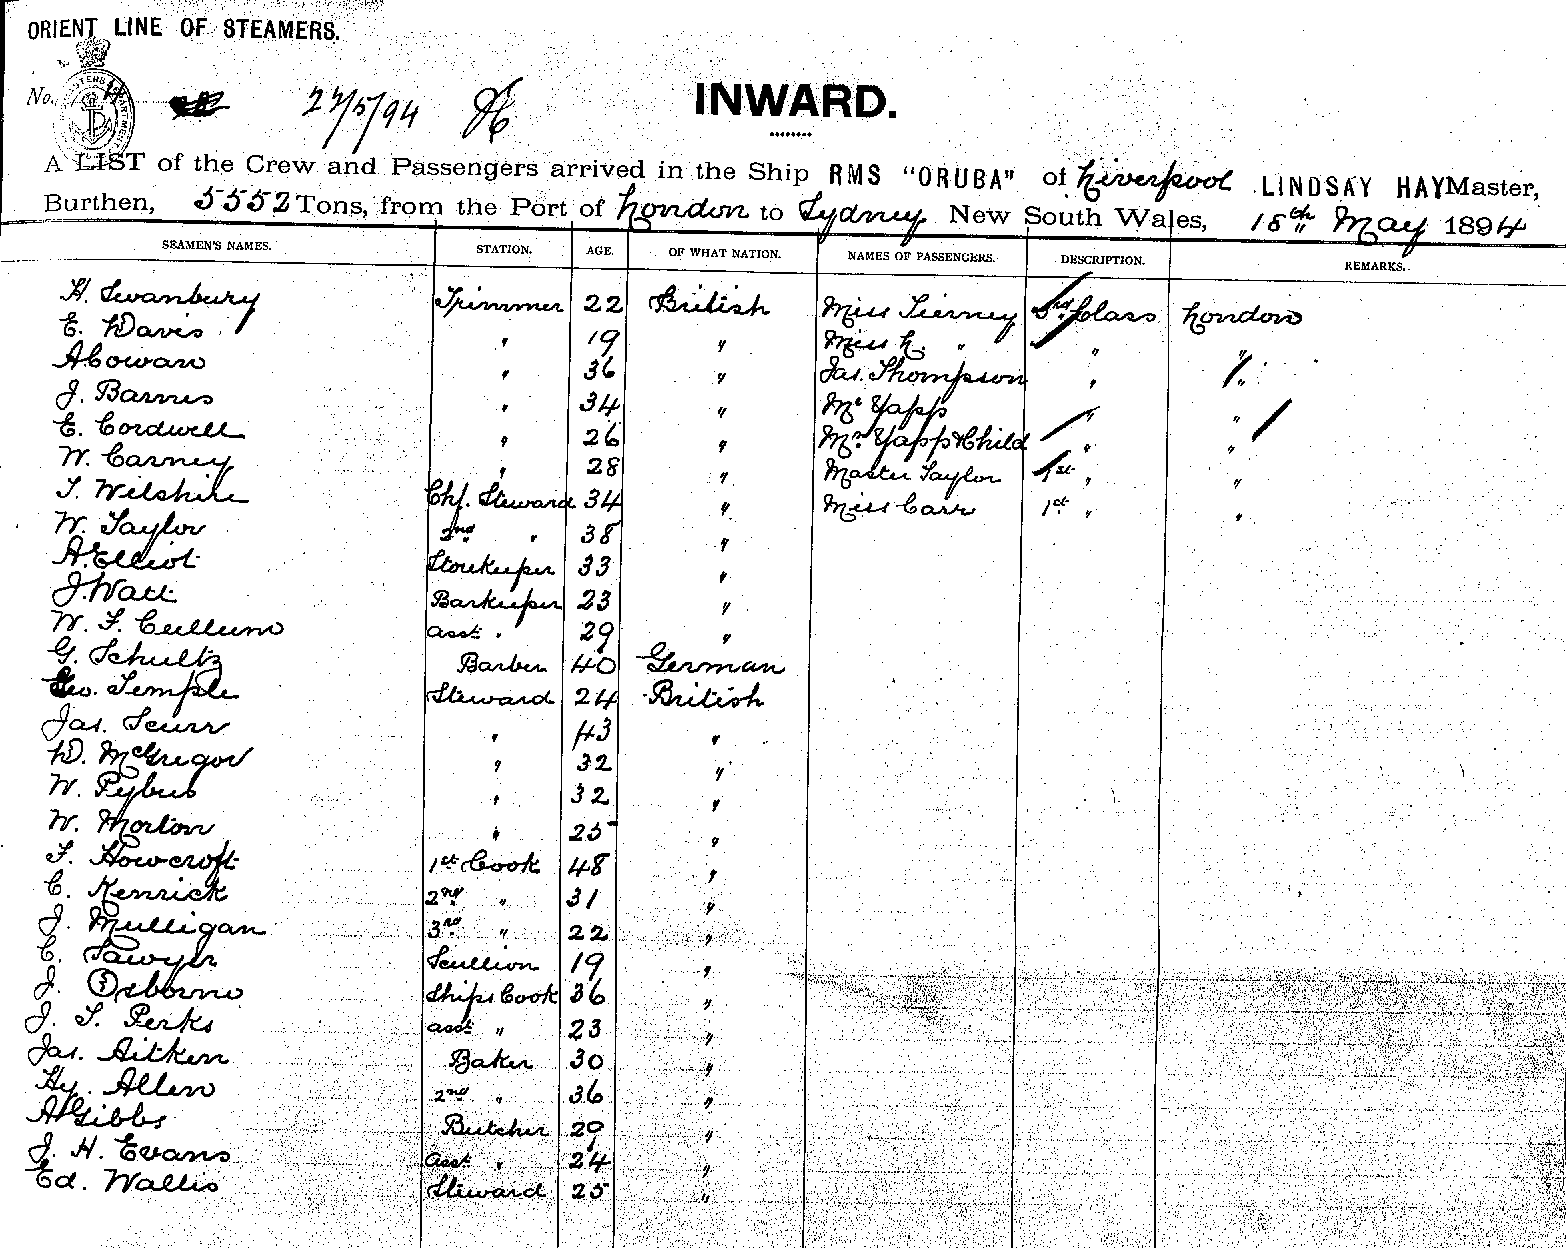 ORIENT LINE OF STEAMERS.
No. 27/5/94
INWARD.
A LIST of the Crew and Passengers arrived in the Ship RMS "ORUBA" of Liverpool LINDSAY HAY Master,
Burthen, 5552 Tons, from the Port of London to Sydney New South Wales, 18th May 1894
SEAMEN'S NAMES. STATION. AGE. OF WHAT NATION. NAMES OF PASSENGERS. DESCRIPTION. REMARKS.
H. Swanbury Trimmer 22 British Miss Tierney 3rd Class London
E. Davis " 19 " Miss L. " " "
A Cowan " 36 " Jas. Thompson " "
J. Barnes " 34 " Mr Yapp " "
E. Cordwell " 26 " Mrs Yapp & Child " "
W. Carney " 28 " Master Taylor 1st " "
T. Wilshire Chf. Steward 34 " Miss Carr 1st " "
W. Taylor 2nd " 38 "
A. Elliot Storekeeper 33 "
J. Watt Barkeeper 23 "
W. F. Cullum asst " 29 "
G. Schultz Barber 40 German
Geo. Temple Steward 24 British
Jas. Scurr " 43 "
D. McGregor " 32 "
W. Pybus " 32 "
W. Morton " 25 "
F. Howcroft 1st Cook 48 "
C. Kenrick 2nd " 31 "
J. Mulligan 3rd " 22 "
C. Sawyer Scullion 19 "
J. Osborne Ships Cook 36 "
J. S. Perks asst " 23 "
Jas. Aitken Baker 30 "
Hy. Allen 2nd " 36 "
A Gibbs Butcher 29 "
J. H. Evans asst " 24 "
Ed. Wallis Steward 25 "